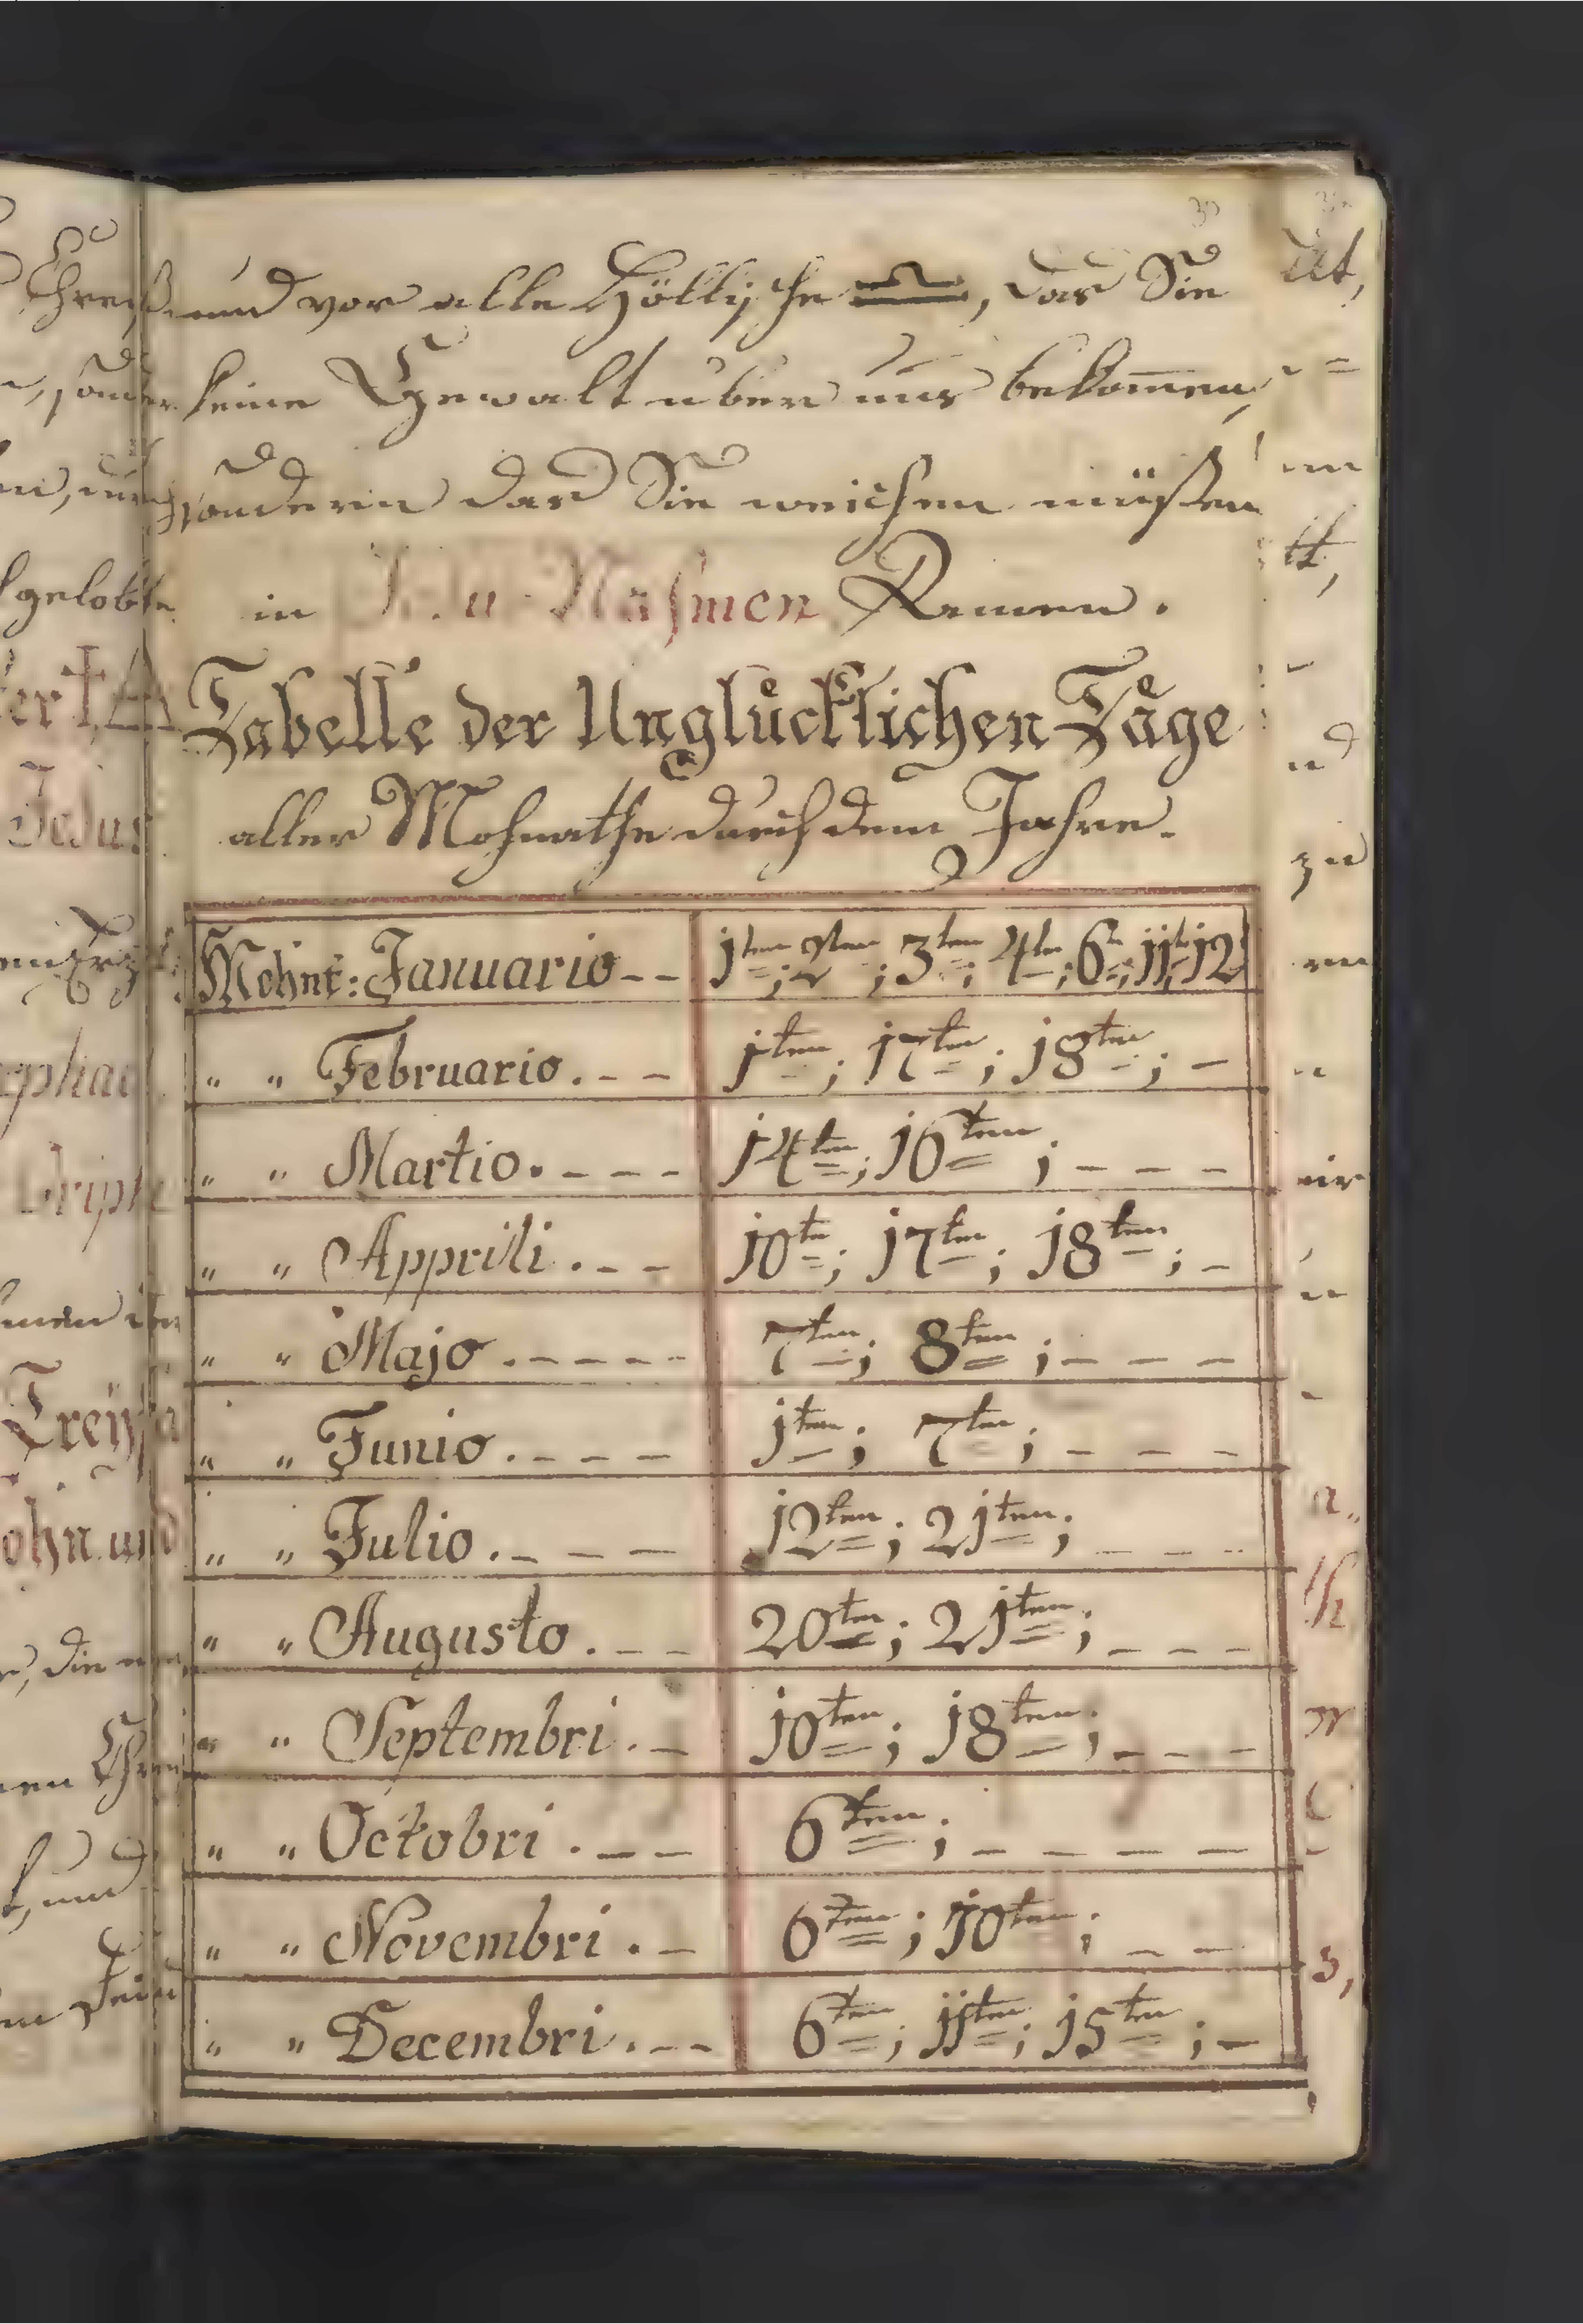 30
und vor alle Höllische ♎, das Sie
keine Gewalt über uns bekom̄en,
sondern das Sie weichen müßen
in Jesu Nahmen Amen.
Tabelle der Unglücklichen Täge
aller Mohnathe durch dem Jahre.
Mohnt: Januario-- 1ten; 2ten; 3ten; 4ten; 6ten; 11ten; 12
" " Februario.-- 1ten; 17ten; 18ten; -
" " Martio.---- 14ten; 16ten; ---
" " Apprili.--- 10ten; 17ten; 18ten; -
" " Majo.----- 7ten; 8ten; ---
" " Junio.---- 1ten; 7ten; ---
" " Julio.---- 12ten; 21ten; ---
" " Augusto.--- 20ten; 21ten; ---
" " Septembri.-- 10ten; 18ten; ---
" " Octobri.--- 6ten; ----
" " Novembri.- 6ten; 10ten; --
" " Decembri.--- 6ten; 11ten; 15ten; -